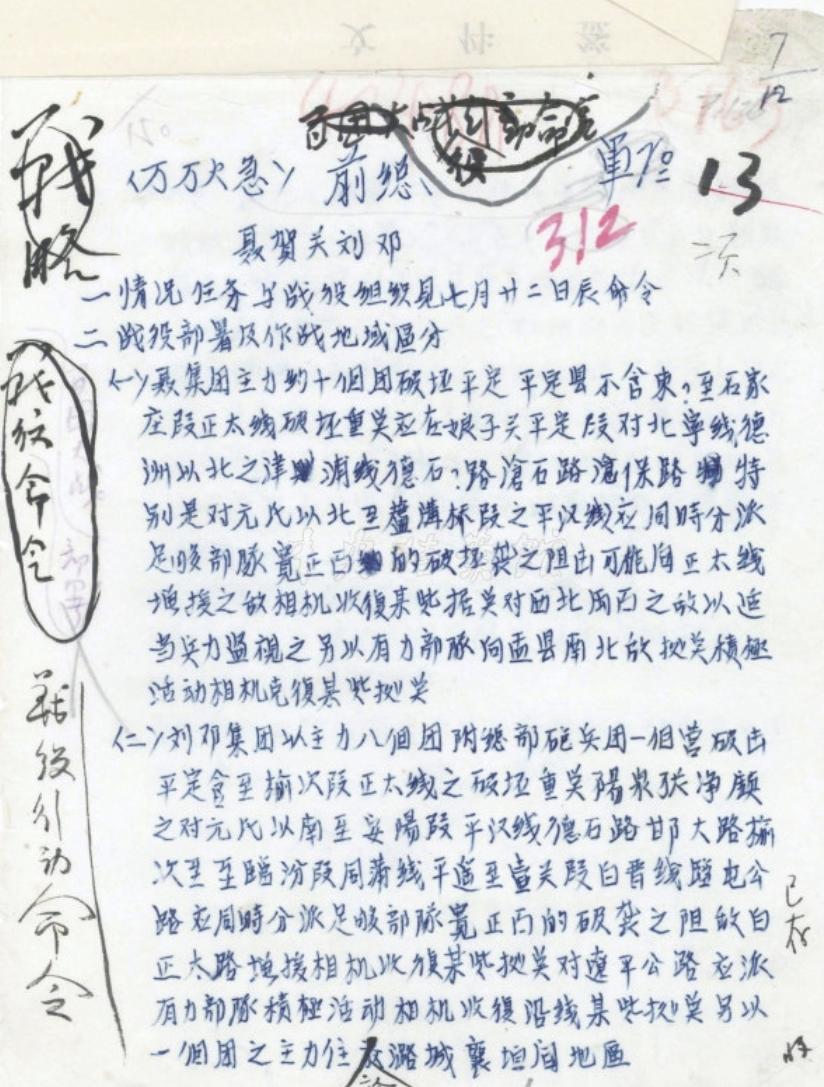 百团大战行动命令
战役
7/12
(万万火急) 前总、 軍
13
次
312
聂賀关刘邓
一情况任务与战役组织见七月廿二日辰命令
二战役部署及作战地域區分
(一)聂集团主力约十個团破坏平定 平定县不含東?至石家
庄段正太线破坏重点应在娘子关平定段对北寧线德
洲以北之津浦线德石?路滄石路滄保路 特
别是对元氏以北至蘆溝桥段之平汉线应同時分派
足够部隊寬正面的破坏袭之阻击可能向正太线
增援之敌相机收復某些据点对西北两面之敌以适
当兵力监視之另以有力部隊向盂县南北敌拠点積極
活动相机克復某些拠点
(二)刘邓集团以主力八個团附總部砲兵团一個营破击
平定含至榆次段正太线之破坏重点陽泉张净鎮
之对元氏以南至安陽段平汉线德石路邯大路榆
次至至臨汾段同蒲线平遥至壺关段白晋线臨屯公
路应同時分派足够部隊寬正面的破袭之阻敌向
正太路增援相机收復某些拠点对遼平公路应派
有力部隊積極活动相机收復沿线某些拠点另以
一個团之主力位於潞城襄垣间地區
戰略
戰役命令
戰役行动命令
已存